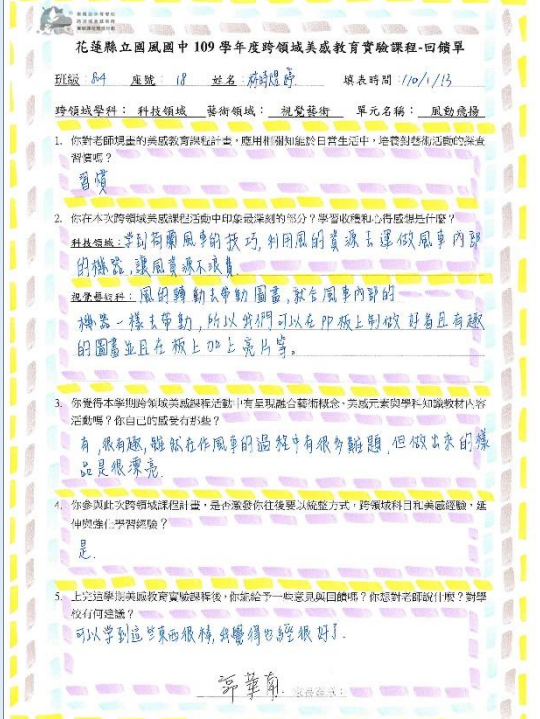 花蓮縣立國風國中 109 學年度跨領域美感教育實驗課程-回饋單
班級: 804 座號: 18 姓名: 填表時間: 110/1/13
跨領域學科: 科技領域 藝術領域: 視覺藝術 單元名稱: 風動飛揚
1. 你對老師規畫的美感教育課程計畫,應用相關知能於日常生活中,培養對藝術活動的深度
習慣嗎?
習慣
2. 你在本次跨領域美感課程活動中印象最深刻的部分?學習收穫和心得感想是什麼?
科技領域: 學到荷蘭風車的技巧,利用風的資源去運做風車內部
的機器,讓風資源不浪費.
視覺藝術科: 風的轉動去帶動圖畫,就合風車內部的
機器一樣去帶動,所以我們可以在PP板上制做好看且有趣
的圖畫並且在板上加上亮片等。
3. 你覺得本學期跨領域美感課程活動中有呈現融合藝術概念、美感元素與學科知識教材內容
活動嗎?你自己的感受有那些?
有,很有趣,雖然在作風車的過程中有很多難題,但做出來的樣
品是很漂亮.
4. 你參與此次跨領域課程計畫,是否激發你往後要以統整方式,跨領域科目和美感經驗,延
伸與強化學習經驗?
是.
5. 上完這學期美感教育實驗課程後,你能給予一些意見與回饋嗎?你想對老師說什麼?對學
校有何建議?
可以學到這些東西很棒,我覺得已經很好了.